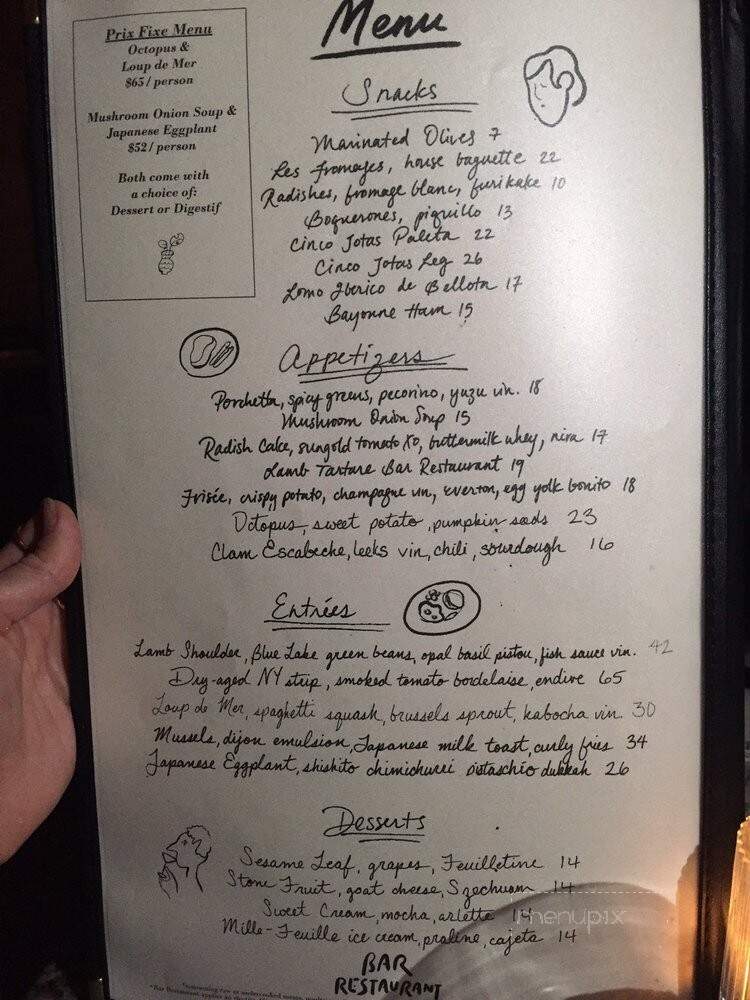 Prix Fixe Menu
Octopus &
Loup de Mer
$65 / person
Mushroom Onion Soup &
Japanese Eggplant
$52 / person
Both come with
a choice of:
Dessert or Digestif
Menu
Snacks
Marinated Olives 7
Les Fromages, house baguette 22
Radishes, fromage blanc, furikake 10
Boquerones, piquillo 13
Cinco Jotas Paleta 22
Cinco Jotas Leg 26
Lomo Iberico de Bellota 17
Bayonne Ham 15
Appetizers
Porchetta, spicy greens, pecorino, yuzu vin. 18
Mushroom Onion Soup 15
Radish Cake, sungold tomato XO, buttermilk whey, nira 17
Lamb Tartare Bar Restaurant 19
Frisée, crispy potato, champagne vin, everton, egg yolk bonito 18
Octopus, sweet potato, pumpkin seeds 23
Clam Escabeche, leeks vin, chili, sourdough 16
Entrées
Lamb Shoulder, Blue Lake green beans, opal basil pistou, fish sauce vin. 42
Dry-aged NY strip, smoked tomato bordelaise, endive 65
Loup de Mer, spaghetti squash, brussels sprout, kabocha vin. 30
Mussels, dijon emulsion, Japanese milk toast, curly fries 34
Japanese Eggplant, shishito chimichurri pistaschio dukkah 26
Desserts
Sesame Leaf, grapes, Feuilletine 14
Stone Fruit, goat cheese, Szechuan 14
Sweet Cream, mocha, arlette 14
Mille-Feuille ice cream, praline, cajeta 14
menupix
BAR
RESTAURANT